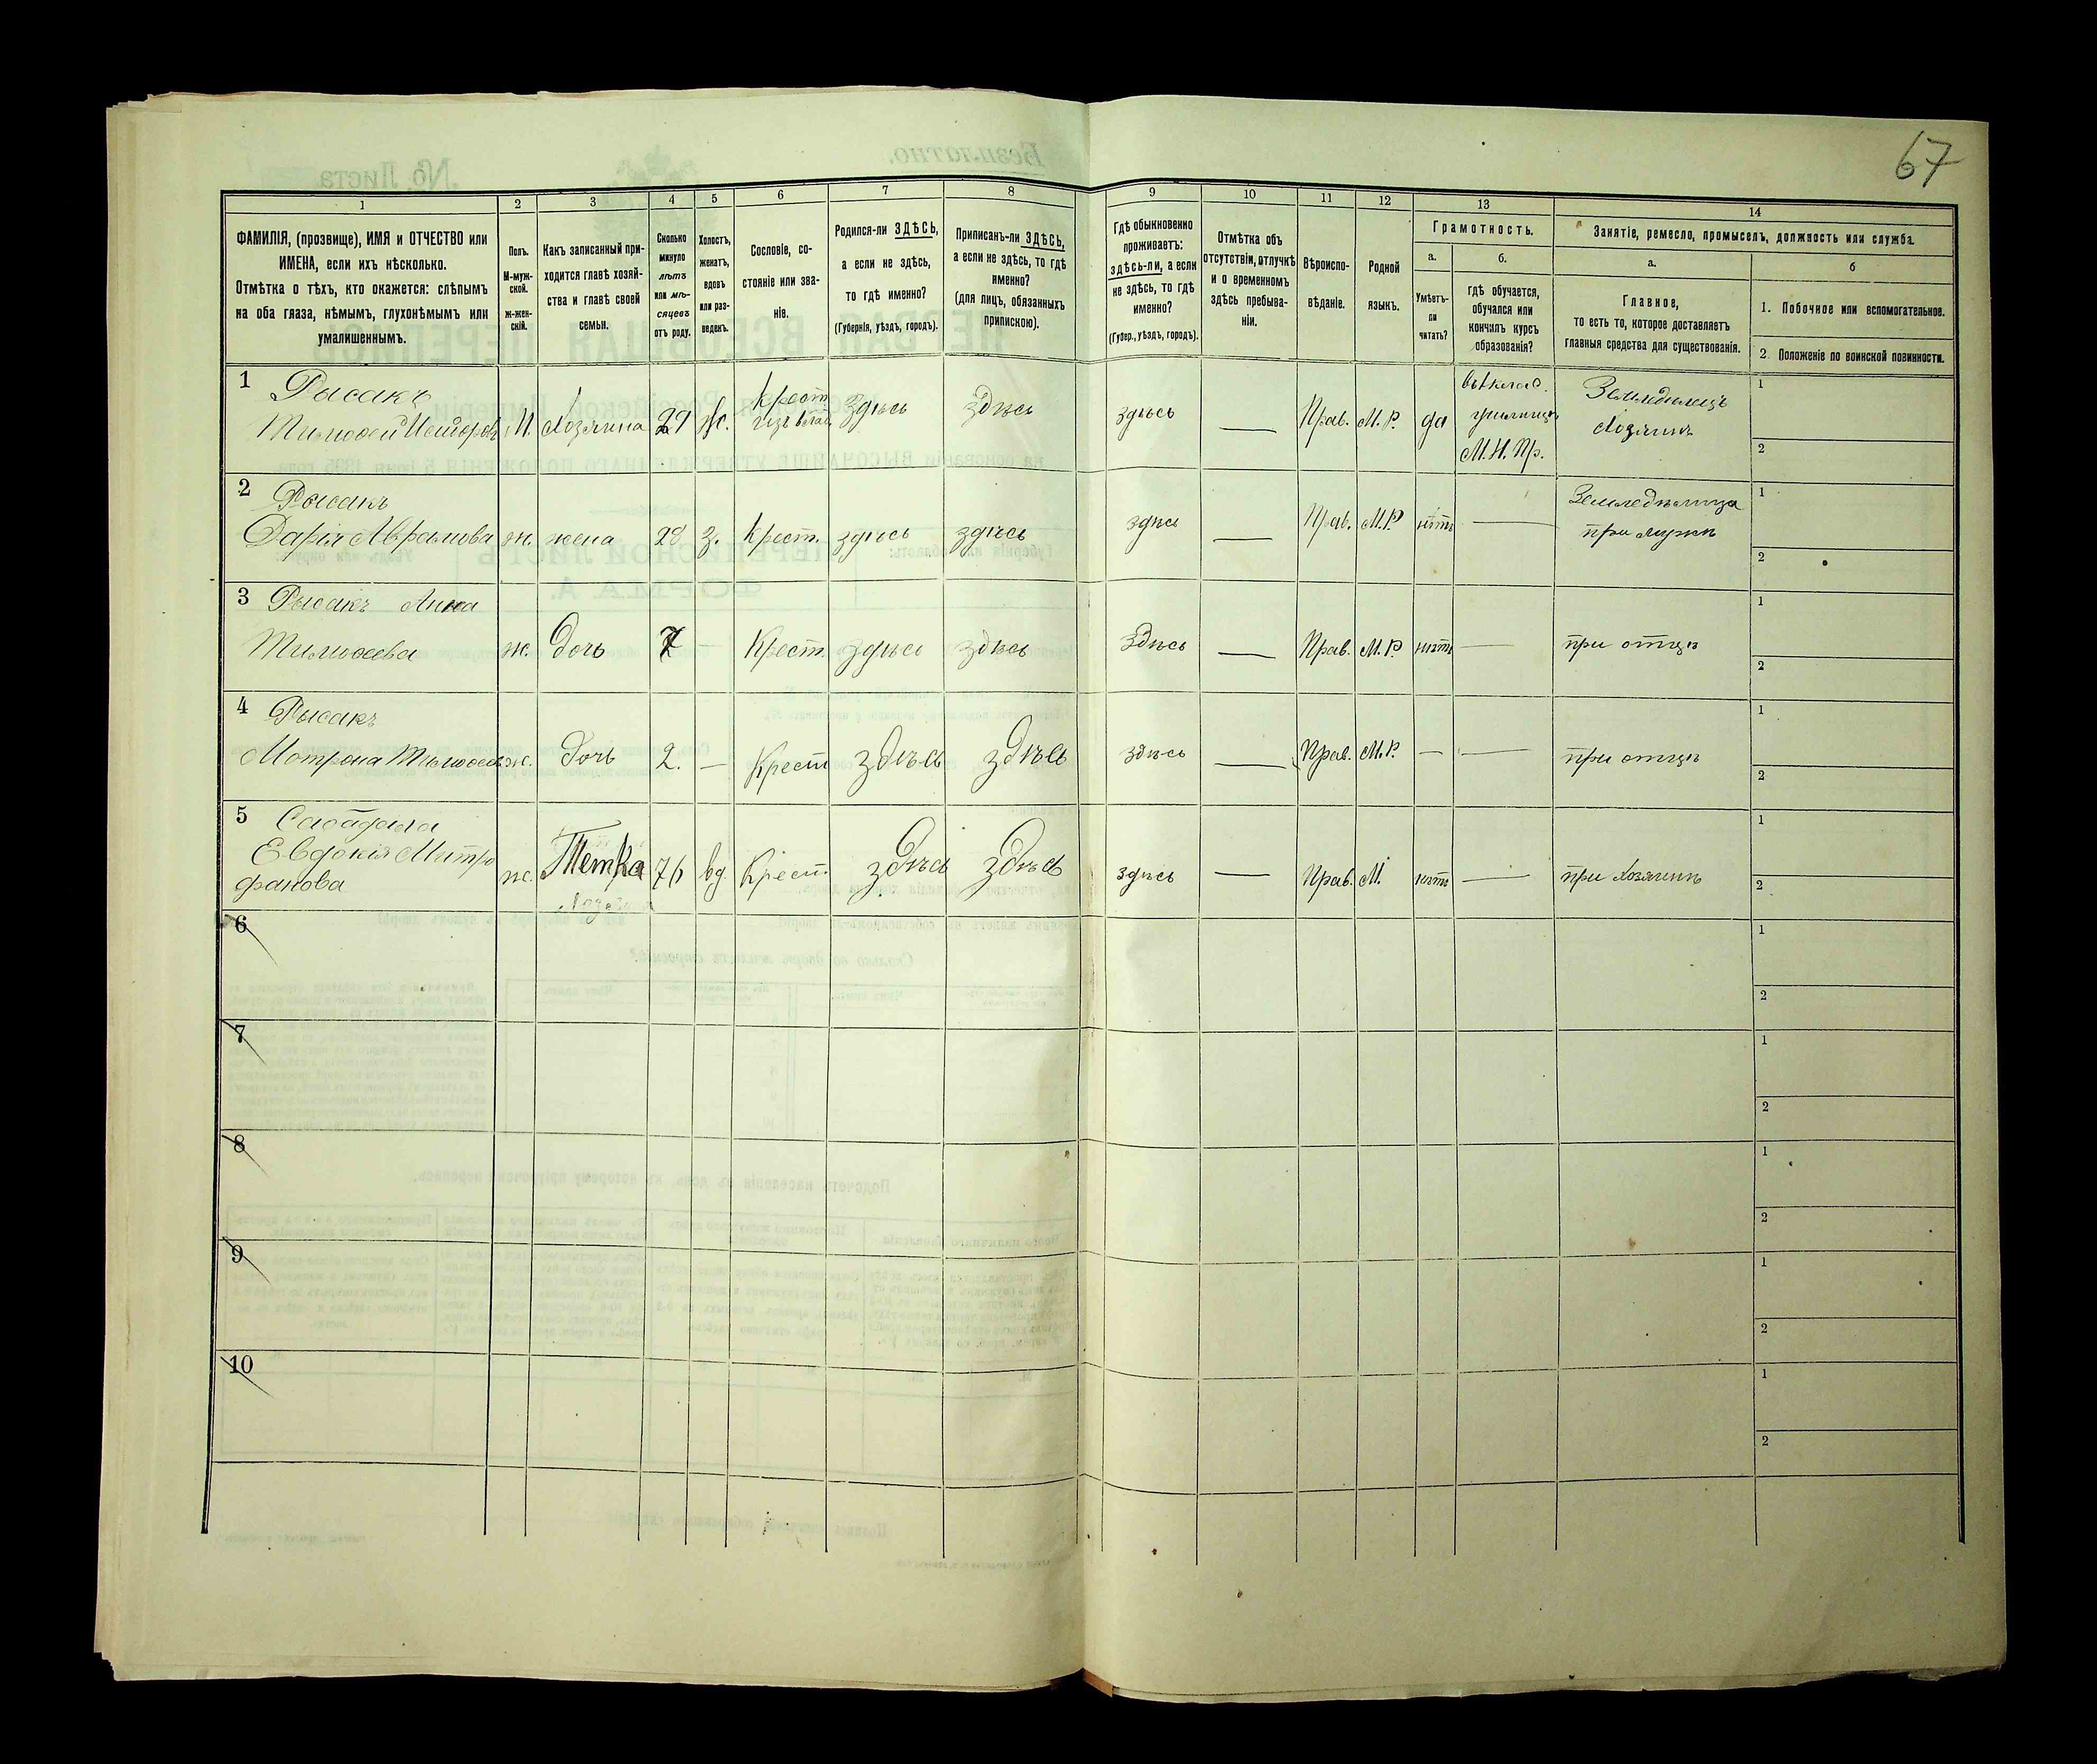 67
1
2
3
4
5
6
7
8
9
10
11
12
13
14
ФАМИЛІЯ, (прозвище), ИМЯ и ОТЧЕСТВО или
ИМЕНА, если ихъ нѣсколько.
Отмѣтка о тѣхъ, кто окажется: слѣпымъ
на оба глаза, нѣмымъ, глухонѣмымъ или
умалишеннымъ.
Полъ.
М-муж-
ской.
ж-жен-
скій.
Какъ записанный при-
ходится главѣ хозяй-
ства и главѣ своей
семьи.
Сколько
минуло
лѣтъ
или мѣ-
сяцевъ
отъ роду.
Холостъ,
женатъ,
вдовъ
или раз-
веденъ.
Сословіе, со-
стояніе или зва-
ніе.
Родился-ли ЗДѢСЬ,
а если не здѣсь,
то гдѣ именно?
(Губернія, уѣздъ, городъ).
Приписанъ-ли ЗДѢСЬ,
а если не здѣсь, то гдѣ
именно?
(для лицъ, обязанныхъ
припискою).
Гдѣ обыкновенно
проживаетъ:
здѣсь-ли, а если
не здѣсь, то гдѣ
именно?
(Губер., уѣздъ, городъ).
Отмѣтка объ
отсутствіи, отлучкѣ
и о временномъ
здѣсь пребыва-
ніи.
Вѣроиспо-
вѣданіе.
Родной
языкъ.
Грамотность.
а.
Умѣетъ-
ли
читать?
б.
гдѣ обучается,
обучался или
кончилъ курсъ
образованія?
Занятіе, ремесло, промыселъ, должность или служба.
а.
Главное,
то есть то, которое доставляетъ
главныя средства для существованія.
б
1. Побочное или вспомогательное.
2. Положеніе по воинской повинности.
1 Рысакъ
Тимофей Исидоровъ М. Хозяинъ 29 Ж. Крест. здѣсь здѣсь здѣсь — Прав. М.Р. да
училищѣ
М.Н.Пр.
Земледѣлецъ
Хозяинъ
1
2
2 Рысакъ
Дарія Аврамова ж. жена 28 З. Крест. здѣсь здѣсь здѣсь — Прав. М.Р нѣтъ — Земледѣлица
при мужѣ
1
2
3 Рысакъ Анна
Тимофеева ж. Дочь 7 — Крест. здѣсь здѣсь здѣсь — Прав. М.Р. нѣтъ — при отцѣ
1
2
4 Рысакъ
Мотрона Тимофеева ж. Дочь 2. — Крест здѣсь здѣсь здѣсь — Прав. М.Р. — — при отцѣ
1
2
5
Евдокія Митро
фанова ж. Тетка 76 вд. Крест. здѣсь здѣсь здѣсь — Прав. М. нѣтъ — при Хозяинѣ
1
2
6
1
2
7
1
2
8
1
2
9
1
2
10
1
2